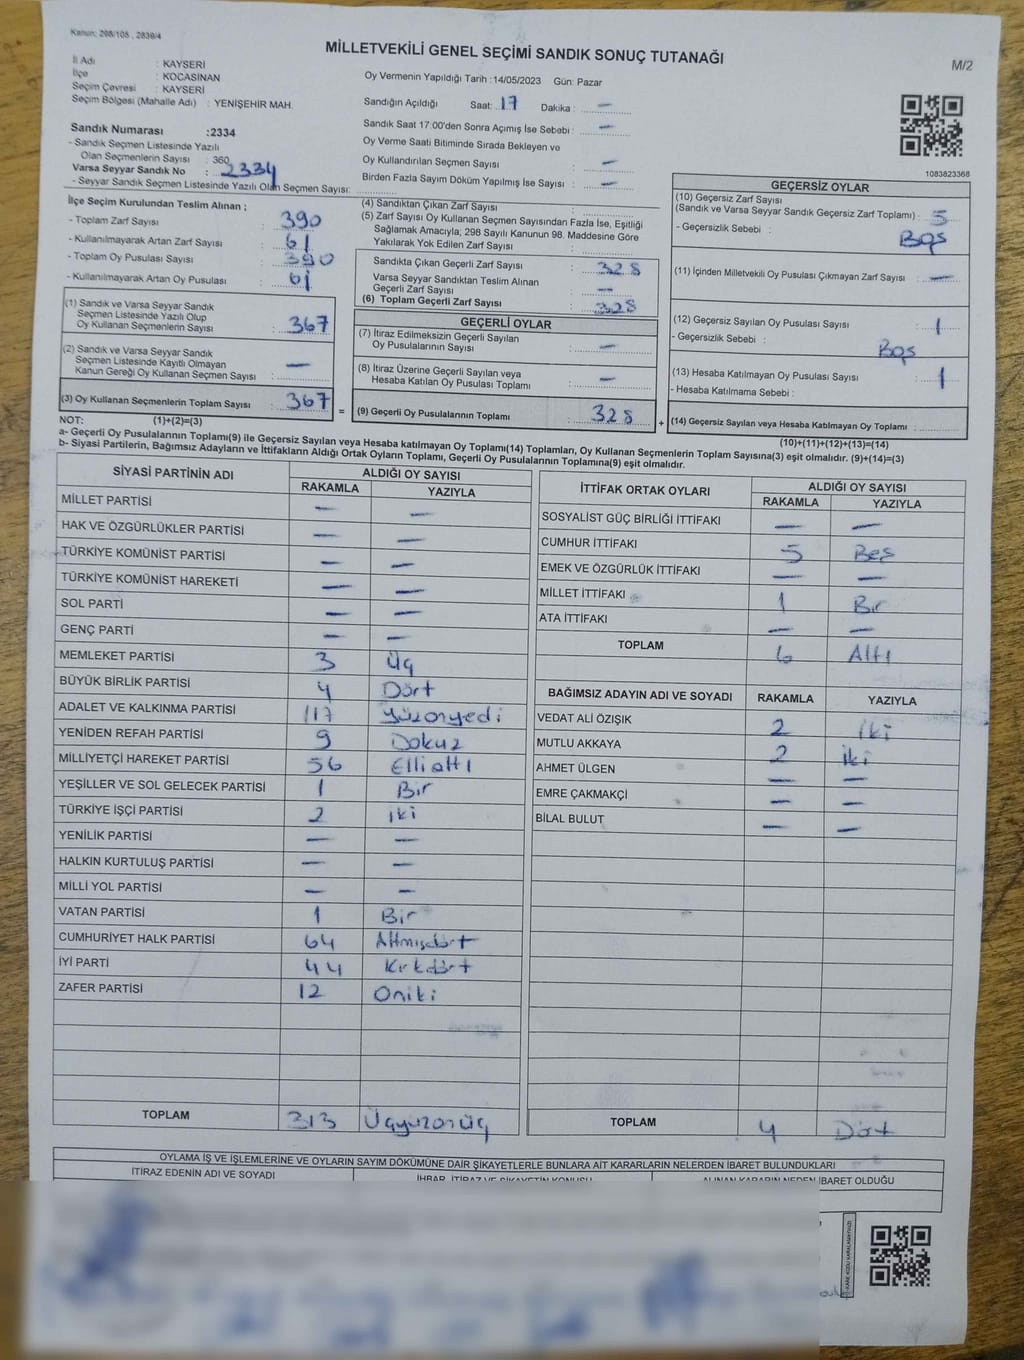 Kanun; 298/105 , 2839/4
MİLLETVEKİLİ GENEL SEÇİMİ SANDIK SONUÇ TUTANAĞI
M/2
İl Adı : KAYSERİ
İlçe : KOCASİNAN
Seçim Çevresi : KAYSERİ
Seçim Bölgesi (Mahalle Adı) : YENİŞEHİR MAH.
Oy Vermenin Yapıldığı Tarih :14/05/2023 Gün: Pazar
Sandığın Açıldığı Saat: 17 Dakika : —
Sandık Saat 17:00'den Sonra Açımış İse Sebebi : —
Oy Verme Saati Bitiminde Sırada Bekleyen ve
Oy Kullandırılan Seçmen Sayısı : —
Birden Fazla Sayım Döküm Yapılmış İse Sayısı : —
Sandık Numarası :2334
- Sandık Seçmen Listesinde Yazılı
Olan Seçmenlerin Sayısı : 360
Varsa Seyyar Sandık No : 2334
- Seyyar Sandık Seçmen Listesinde Yazılı Olan Seçmen Sayısı:
1083823368
İlçe Seçim Kurulundan Teslim Alınan ;
- Toplam Zarf Sayısı : 390
- Kullanılmayarak Artan Zarf Sayısı : 61
- Toplam Oy Pusulası Sayısı : 390
- Kullanılmayarak Artan Oy Pusulası : 61
(1) Sandık ve Varsa Seyyar Sandık
Seçmen Listesinde Yazılı Olup
Oy Kullanan Seçmenlerin Sayısı : 367
(2) Sandık ve Varsa Seyyar Sandık
Seçmen Listesinde Kayıtlı Olmayan
Kanun Gereği Oy Kullanan Seçmen Sayısı : —
(3) Oy Kullanan Seçmenlerin Toplam Sayısı : 367
(1)+(2)=(3)
(4) Sandıktan Çıkan Zarf Sayısı :
(5) Zarf Sayısı Oy Kullanan Seçmen Sayısından Fazla İse, Eşitliği
Sağlamak Amacıyla; 298 Sayılı Kanunun 98. Maddesine Göre
Yakılarak Yok Edilen Zarf Sayısı :
Sandıkta Çıkan Geçerli Zarf Sayısı : 328
Varsa Seyyar Sandıktan Teslim Alınan
Geçerli Zarf Sayısı : —
(6) Toplam Geçerli Zarf Sayısı : 328
GEÇERLİ OYLAR
(7) İtiraz Edilmeksizin Geçerli Sayılan
Oy Pusulalarının Sayısı : —
(8) İtiraz Üzerine Geçerli Sayılan veya
Hesaba Katılan Oy Pusulası Toplamı : —
= (9) Geçerli Oy Pusulalarının Toplamı 328
GEÇERSİZ OYLAR
(10) Geçersiz Zarf Sayısı
(Sandık ve Varsa Seyyar Sandık Geçersiz Zarf Toplamı) : 5
- Geçersizlik Sebebi : Boş
(11) İçinden Milletvekili Oy Pusulası Çıkmayan Zarf Sayısı : —
(12) Geçersiz Sayılan Oy Pusulası Sayısı : 1
- Geçersizlik Sebebi : Boş
(13) Hesaba Katılmayan Oy Pusulası Sayısı : 1
- Hesaba Katılmama Sebebi :
+ (14) Geçersiz Sayılan veya Hesaba Katılmayan Oy Toplamı :
(10)+(11)+(12)+(13)=(14)
NOT:
a- Geçerli Oy Pusulalarının Toplamı(9) ile Geçersiz Sayılan veya Hesaba katılmayan Oy Toplamı(14) Toplamları, Oy Kullanan Seçmenlerin Toplam Sayısına(3) eşit olmalıdır. (9)+(14)=(3)
b- Siyasi Partilerin, Bağımsız Adayların ve İttifakların Aldığı Ortak Oyların Toplamı, Geçerli Oy Pusulalarının Toplamına(9) eşit olmalıdır.
SİYASİ PARTİNİN ADI ALDIĞI OY SAYISI
RAKAMLA YAZIYLA
MİLLET PARTİSİ — —
HAK VE ÖZGÜRLÜKLER PARTİSİ — —
TÜRKİYE KOMÜNİST PARTİSİ — —
TÜRKİYE KOMÜNİST HAREKETİ — —
SOL PARTİ — —
GENÇ PARTİ — —
MEMLEKET PARTİSİ 3 Üç
BÜYÜK BİRLİK PARTİSİ 4 Dört
ADALET VE KALKINMA PARTİSİ 117 yüzonyedi
YENİDEN REFAH PARTİSİ 9 Dokuz
MİLLİYETÇİ HAREKET PARTİSİ 56 Elli altı
YEŞİLLER VE SOL GELECEK PARTİSİ 1 Bir
TÜRKİYE İŞÇİ PARTİSİ 2 iki
YENİLİK PARTİSİ — —
HALKIN KURTULUŞ PARTİSİ — —
MİLLİ YOL PARTİSİ — —
VATAN PARTİSİ 1 Bir
CUMHURİYET HALK PARTİSİ 64 Altmışdört
İYİ PARTİ 44 Kırkdört
ZAFER PARTİSİ 12 Oniki
TOPLAM 313 Üçyüzonüç
İTTİFAK ORTAK OYLARI ALDIĞI OY SAYISI
RAKAMLA YAZIYLA
SOSYALİST GÜÇ BİRLİĞİ İTTİFAKI — —
CUMHUR İTTİFAKI 5 Beş
EMEK VE ÖZGÜRLÜK İTTİFAKI — —
MİLLET İTTİFAKI 1 Bir
ATA İTTİFAKI — —
TOPLAM 6 Altı
BAĞIMSIZ ADAYIN ADI VE SOYADI RAKAMLA YAZIYLA
VEDAT ALİ ÖZIŞIK 2 iki
MUTLU AKKAYA 2 iki
AHMET ÜLGEN — —
EMRE ÇAKMAKÇİ — —
BİLAL BULUT — —
TOPLAM 4 Dört
OYLAMA İŞ VE İŞLEMLERİNE VE OYLARIN SAYIM DÖKÜMÜNE DAİR ŞİKAYETLERLE BUNLARA AİT KARARLARIN NELERDEN İBARET BULUNDUKLARI
İTİRAZ EDENİN ADI VE SOYADI İHBAR, İTİRAZ VE ŞİKAYETİN KONUSU ALINAN KARARIN NEDEN İBARET OLDUĞU